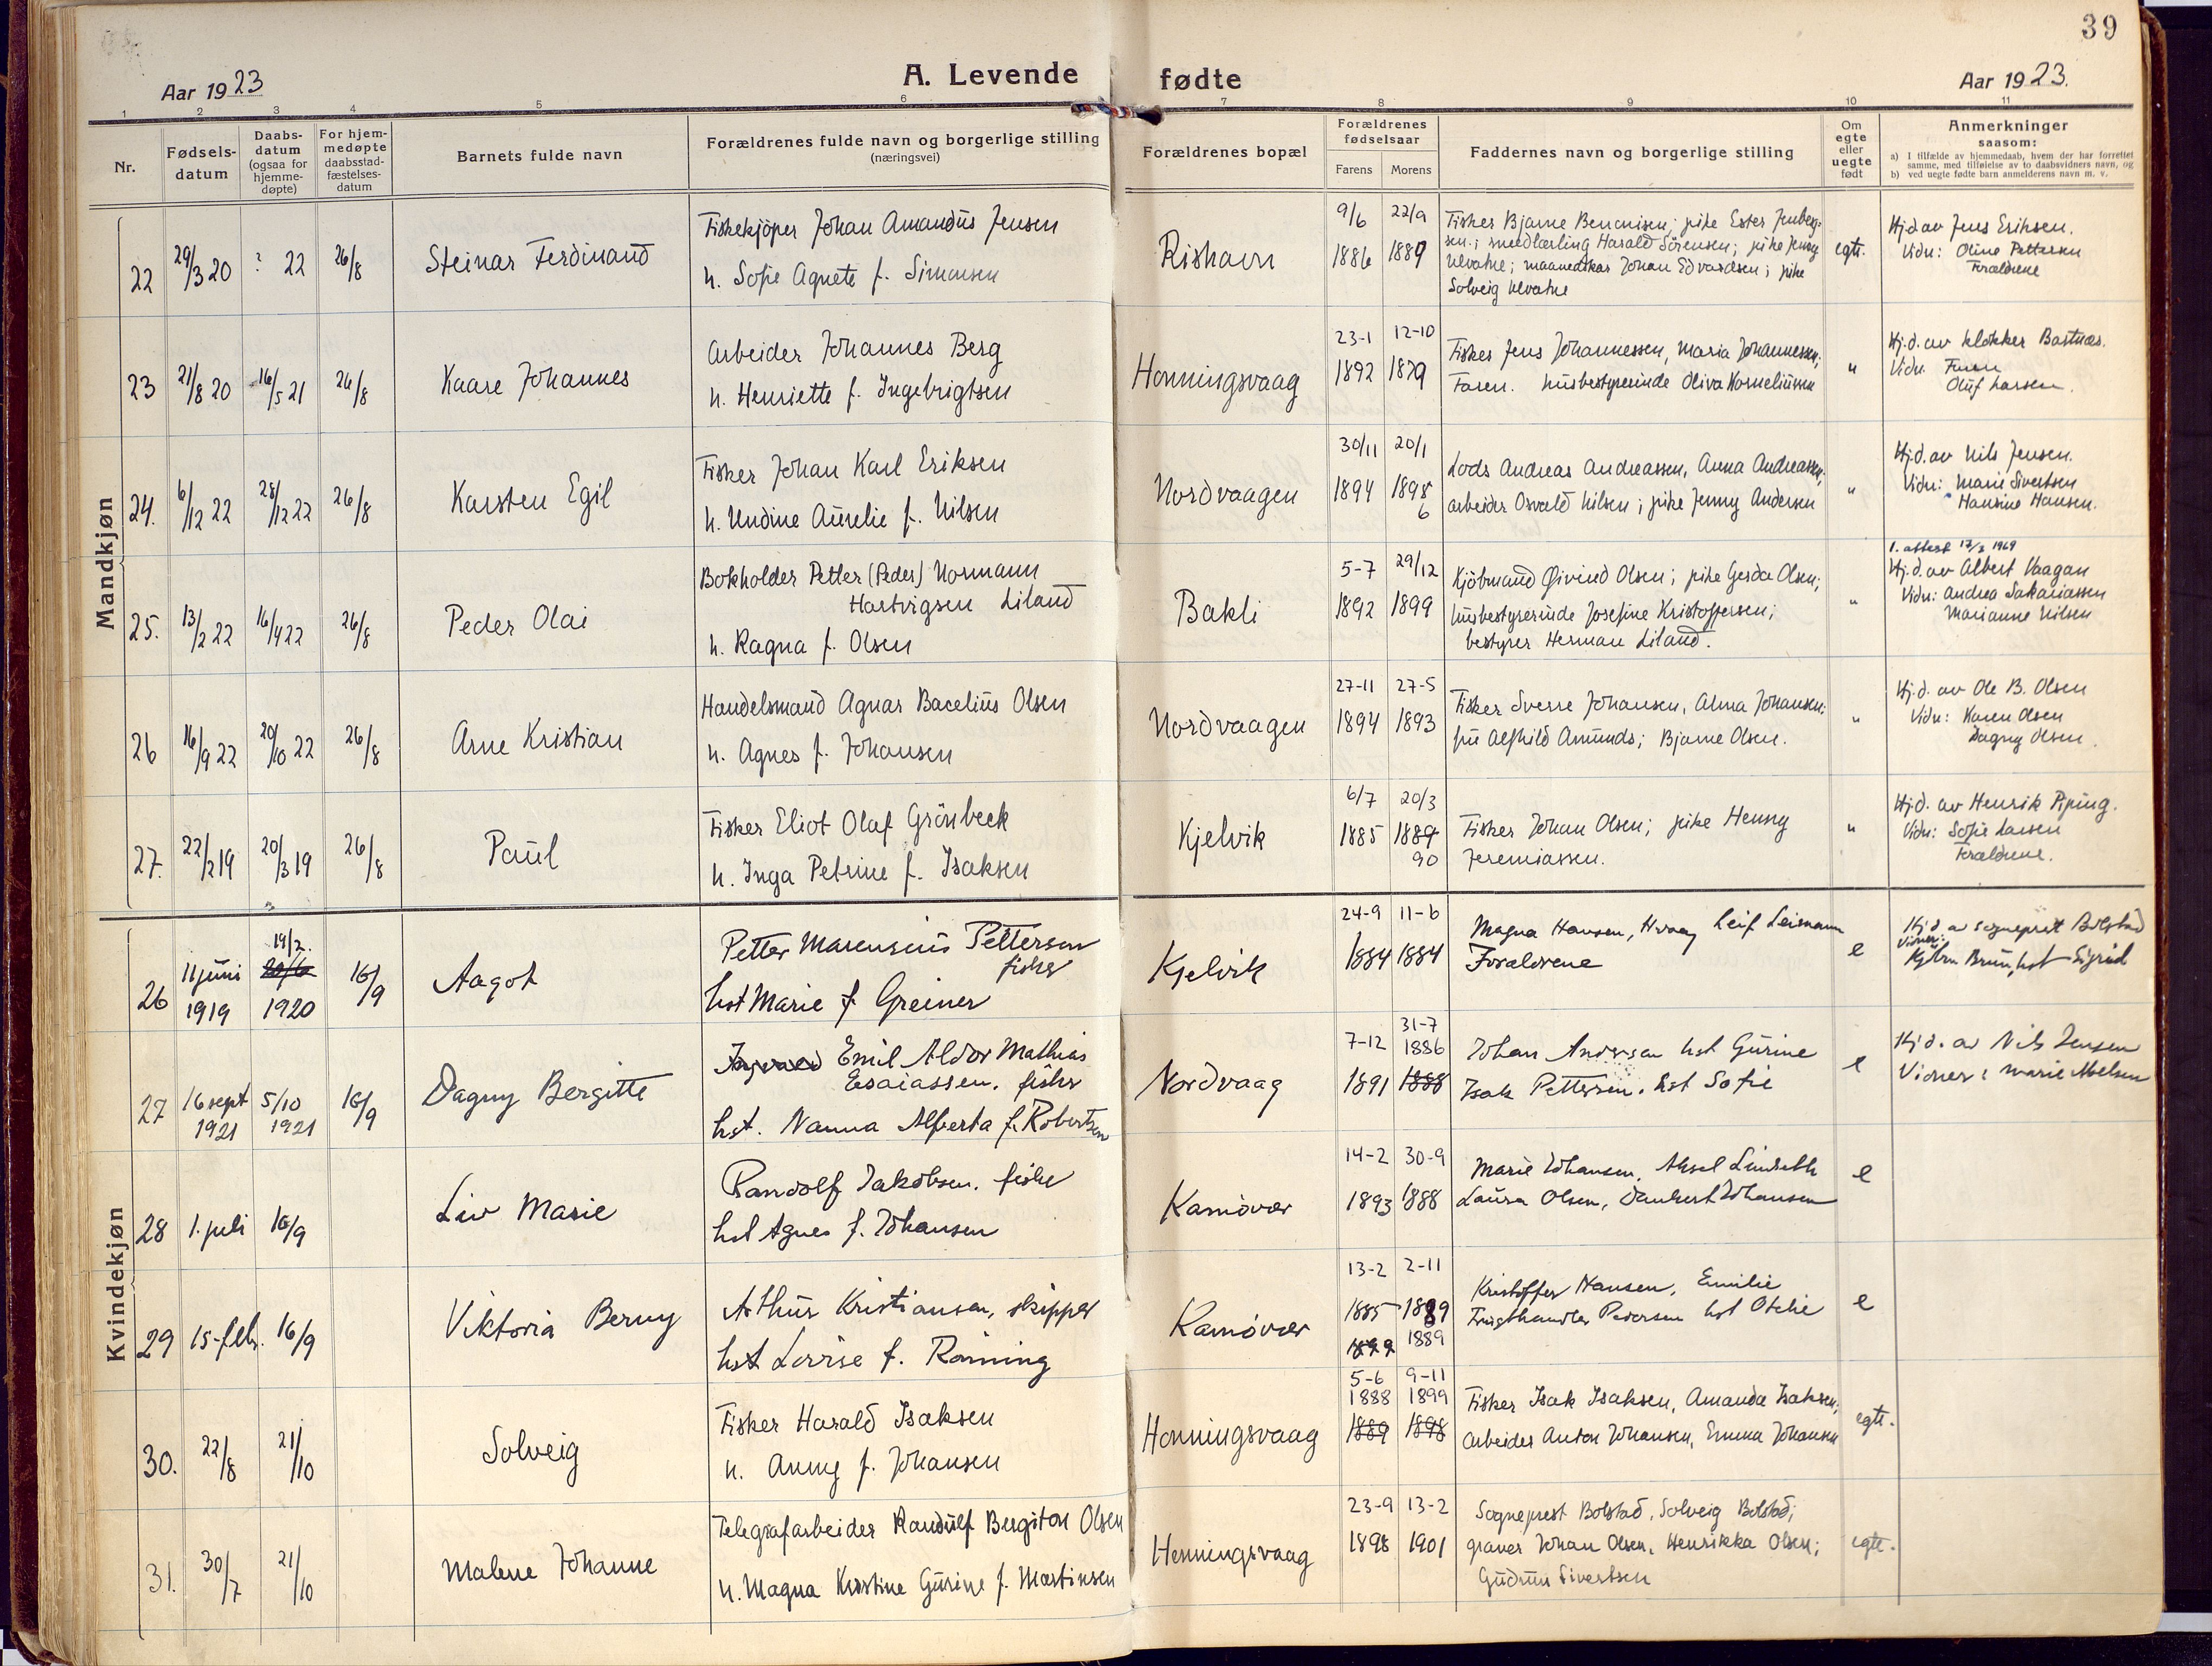 39
Aar 1923
A. Levende fødte
Aar 1923.
1 2 3 4 5 6 7 8 9 10 11
Nr.
Fødsels-
datum
Daabs-
datum
(ogsaa for
hjemme-
døpte)
For hjem-
medøpte
daabsstad-
fæstelses-
datum
Barnets fulde navn
Forældrenes fulde navn og borgerlige stilling
(næringsvei)
Forældrenes bopæl
Forældrenes
fødselsaar
Farens Morens
Faddernes navn og borgerlige stilling
Om
egte
eller
uegte
født
Anmerkninger
saasom:
a) I tilfælde av hjemmedaab, hvem der har forrettet
samme, med tilføielse av to daabsvidners navn, og
b) ved uegte fødte barn anmelderens navn m. v.
Mandkjøn
22 29/3 20 ? 22 26/8 Steinar Ferdinand
Fiskekjøper Johan Amandus Jensen
h. Sofie Agnete f. Simonsen
Rishavn
9/6 22/9
1886 1889
Fisker Bjarne; pike Ester
sen; smedlærling Harald Sørensen; pike Jenny
Ulvatne; Johan Edvardsen; pike
Solveig Ulvatne
egte.
Hj.d av Jens Eriksen.
Vidn: Oline Pettersen
Forældrene
23 21/8 20 16/5 21 26/8 Kaare Johannes
Arbeider Johannes Berg
h. Henriette f. Ingebrigtsen
Honningsvaag
23-1 12-10
1892 1879
Fisker Jens Johannessen, Maria Johannessen,
Faren. husbestyrerinde Oliva Korneliussen
"
Hj.d. av klokker Bastnæs.
Vidn. Faren
Oluf Larsen.
24. 6/12 22 28/12 22 26/8 Karsten Egil
Fisker Johan Karl Eriksen
h. Undine Aurelie f. Nilsen
Nordvaagen
30/11 20/1
1894 1898
6
Lods Andreas Andreassen, Anna Andreassen,
arbeider Osvald Nilsen; pike Jenny Andersen
"
Hj.d. av Nils Jensen.
Vidn: Marie Sivertsen
Hansine Hansen.
25. 13/2 22 16/4 22 26/8 Peder Olai
Bokholder Petter (Peder) Normann
Hartvigsen Liland
h. Ragna f. Olsen
Bakli
5-7 29/12
1892 1899
Kjøbmand Øivind Olsen; pike Gerda Olsen;
husbestyrerinde Josefine Kristoffersen;
bestyrer Herman Liland.
"
1. attest 17/2 1969
Hj.d. av Albert Vaagan
Vidn: Andrea Sakariassen
Marianne Nilsen
26 16/9 22 20/10 22 26/8 Arne Kristian
Handelsmand Agnar Bacelius Olsen
h. Agnes f. Johansen
Nordvaagen
27-11 27-5
1894 1893
Fisker Sverre Johansen, Alma Johansen;
fru Alfhild Amunds; Bjarne Olsen.
"
Hj.d. av Ole B. Olsen
Vidn: Karen Olsen
Dagny Olsen.
27. 22/2 19 20/3 19 26/8 Paul
Fisker Eliot Olaf Grönbeck
h. Inga Petrine f. Isaksen
Kjelvik
6/7 20/3
1885 1889
90
Fisker Johan Olsen; pike Henny
Jeremiassen.
"
Hj.d. av Henrik Piping.
Vidn: Sofie Larsen
Forældrene.
Kvindekjøn
26 11 juni 1919 19/2. 20/6 1920 16/9 Aagot
Petter Marensius Pettersen
fisker
hst Marie f Greiner
Kjelvik
24-9 11-6
1884 1884
Magna Hansen, Hvaag Leif Leismann
Forældrene
e
Hj.d av sogneprest Bolstad
Vidner:
Kjbm Bruun, hst Sigrid
27 16 sept 1921 5/10 1921 16/9 Dagny Bergitte
Ingvald Emil Aldor Mathias
Esaiassen. fisker
hst. Nanna Alfberta f. Robertsen
Nordvaag
7-12 31-7
1886
1891 1888
Johan Andersen hst Gurine
Isak Pettersen. hst Sofie
e
Hj.d. av Nils Jensen
Vidner: Marie Abelsen
28 1. juli 16/9 Liv Marie
Randolf Jakobsen. fisker
hst Agnes f. Johansen
Kamøvær
14-2 30-9
1893 1888
Marie Johansen. Aksel Lindseth
Laura Olsen, Dankert Johansen
e
29 15-febr. 16/9 Viktoria Berny
Arthur Kristiansen, skipper
hst Lovise f. Rønning
Kamøvær
13-2 2-11
1885 1889
1899 1889
Kristoffer Hansen, Emilie
Pedersen hst Otelie
e
30. 22/8 21/10 Solveig
Fisker Harald Isaksen
h. Anny f. Johansen
Honningsvaag
5-6 9-11
1888 1899
1889 1898
Fisker Isak Isaksen, Amanda Isaksen,
arbeider Anton Johansen, Emma Johansen
egte.
31. 30/7 21/10 Malene Johanne
Telegrafarbeider Randulf Bergiton Olsen
h. Magna Kristine Gurine f. Martinsen
Honningsvaag
23-9 13-2
1898 1901
Sogneprest Bolstad, Solveig Bolstad;
graver Johan Olsen, Henrikka Olsen;
Gudrun Sivertsen
egte.